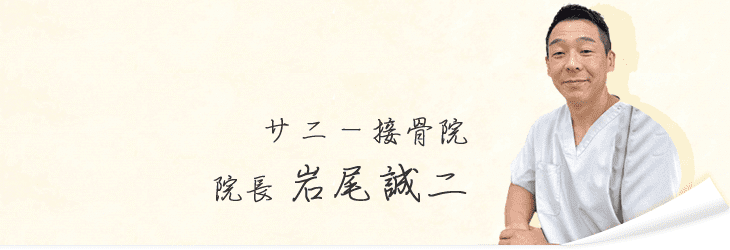 サニー接骨院
院長 岩尾誠二